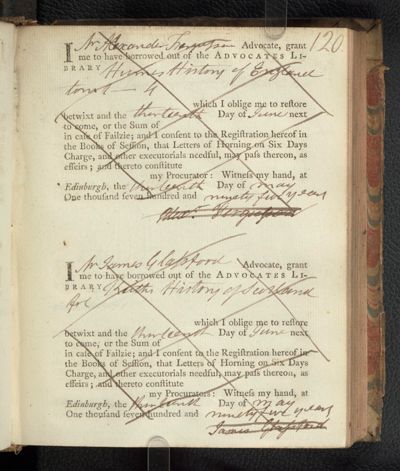 120
I Mr Alexander Fergusson Advocate, grant
me to have borrowed out of the ADVOCATES LI-
BRARY Humes History of England
tom 4
which I oblige me to restore
betwixt and the thirteenth Day of June next
to come, or the Sum of
in case of Failzie; and I consent to the Registration hereof in
the Books of Session, that Letters of Horning on Six Days
Charge, and other executorials needful, may pass thereon, as
effeirs; and thereto constitute
my Procurator: Witness my hand, at
Edinburgh, the thirteenth Day of may
One thousand seven hundred and ninety five years
Alexr. Fergusson
I Mr James Glassford Advocate, grant
me to have borrowed out of the ADVOCATES LI-
BRARY History of Scotland
which I oblige me to restore
betwixt and the thirteenth Day of June next
to come, or the Sum of
in case of Failzie; and I consent to the Registration hereof in
the Books of Session, that Letters of Horning on Six Days
Charge, and other executorials needful, may pass thereon, as
effeirs; and thereto constitute
my Procurators: Witness my hand, at
Edinburgh, the thirteenth Day of may
One thousand seven hundred and ninety five years
James Glassford